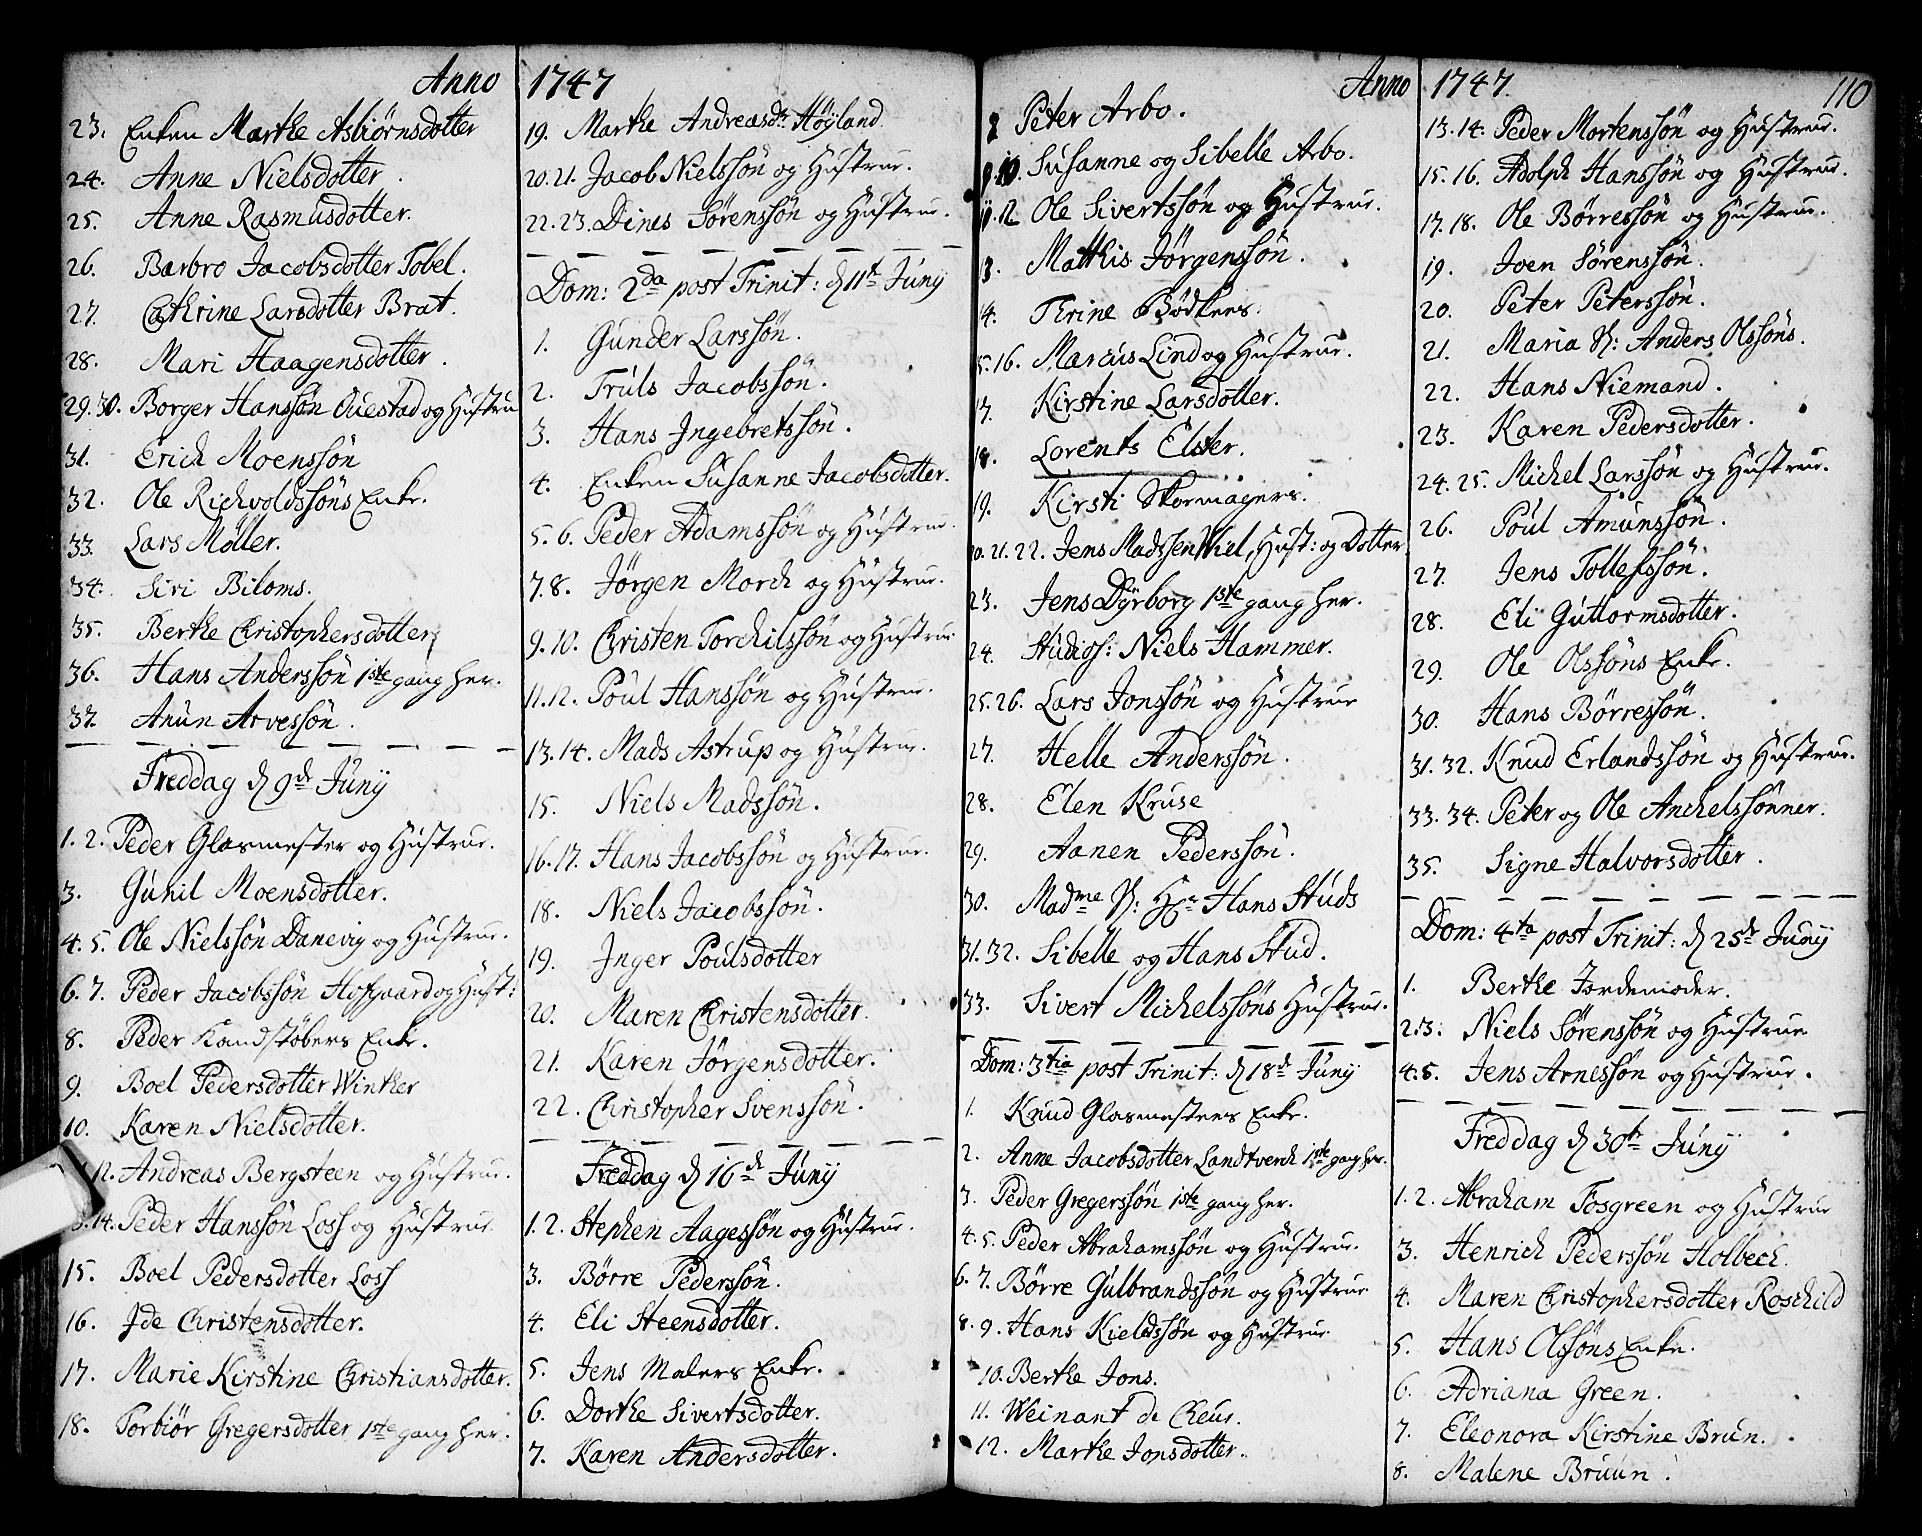 Anno 1747
23. Enken Marthe Asbiørnsdotter
24. Anne Nielsdotter.
25. Anne Rasmusdotter.
26. Barbro Jacobsdotter Tobel.
27. Cathrine Larsdotter Brat.
28. Mari Haagensdotter.
29. 30. Borger Hanssøn Ouestad og Hustru
31. Erich Moenssøn
32. Ole Richvoldssøns Enke.
33. Lars Møller.
34. Siri Biloms.
35. Berthe Christophersdotter,
36. Hans Anderssøn 1ste gang her.
37. Anun Arvessøn.
Freddag d 9de Junij
1. 2. Peder Glasmester og Hustrue.
3. Gunil Moensdotter.
4. 5. Ole Nielssøn Danevig og Hustrue.
6. 7. Peder Jacobssøn Hofgaard og Hust:
8. Peder Kandstøbers Enke.
9. Boel Pedersdotter Winther
10. Karen Nielsdotter.
12. Andreas Bergsteen og Hustrue.
14. Peder Hanssøn Loss og Hustrue
15. Boel Pedersdotter Loss
16. Jde Christensdotter.
17. Marie Kirstine Christiansdotter.
18. Torbiør Gregersdotter 1ste gang her.
19. Marthe Andreasdr. Høyland
20. 21. Jacob Nielssøn og Hustrue.
22. 23. Dines Sørenssøn og Hustrue.
Dom: 2da post Trinit: d 11te Junij
1. Gunder Larssøn.
2. Truls Jacobssøn.
3. Hans Jngebretssøn.
4. Enken Susanne Jacobsdotter.
5. 6. Peder Adamssøn og Hustrue.
7. 8. Jørgen Morch og Hustrue.
9. 10. Christen Torchilssøn og Hustrue
11. 12. Poul Hanssøn og Hustrue.
13. 14. Mads Astrup og Hustrue.
15. Niels Madssøn.
16. 17. Hans Jacobssøn og Hustrue.
18. Niels Jacobssøn.
19. Jnger Poulsdotter
20. Maren Christensdotter.
21. Karen Jørgensdotter.
22. Christopher Svenssøn.
Freddag d 16de Junij
1. 2. Stephen Aagessøn og Hustrue.
3. Børre Pederssøn.
4. Eli Steensdotter.
5. Jens Malers Enke.
6. Dorthe Sivertsdotter.
7. Karen Andersdotter.
Anno 1747. 110
8 Peter Arbo.
9. 10. Susanne og Sibelle Arbo.
11. 12 Ole Sivertssøn og Hustrue.
13. Mathis Jørgenssøn.
14. Thrine Bødkers.
15. 16. Marcus Lind og Hustrue.
17. Kirstine Larsdotter.
18. Lorents Elster.
19. Kirsti Skomagers.
20. 21. 22. Jens Madssen Wiel, Hust: og Dotter
23. Jens Dyrborg 1ste gang her.
24. Studios: Niels Hammer.
25. 26. Lars Jonssøn og Hustrue
27. Helle Anderssøn.
28. Elen Kruse
29. Aanen Pederssøn.
30. Madme S: Hr Hans Studs
31. 32. Sibelle og Hans Stud.
33. Sivert Michelssøns Hustrue.
Dom: 3tia post Trinit: d 18de Junij
1. Knud Glasmesters Enke.
2. Anne Jacobsdotter Landtverch 1ste gag her.
3. Peder Gregerssøn 1ste gang her.
4. 5. Peder Abrahamssøn og Hustrue.
6. 7. Børre Gulbrandssøn og Hustrue
8. 9. Hans Kieldssøn og Hustrue
10. Berthe Jons.
11. Weinant de Cheur.
12. Marthe Jonsdotter.
13. 14. Peder Mortenssøn og Hustrue.
15. 16. Adolph Hanssøn og Hustrue.
17. 18. Ole Børressøn og Hustrue.
19. Joen Sørenssøn.
20. Peter Peterssøn.
21. Maria S: Anders Olssøns.
22. Hans Niemand.
23. Karen Pedersdotter.
24. 25. Michel Larssøn og Hustrue.
26. Poul Amunssøn.
27. Jens Tollefssøn.
28. Eli Guttormsdotter.
29. Ole Olssøns Enke.
30. Hans Børressøn.
31. 32. Knud Erlandssøn og Hustrue.
33. 34. Peter og Ole Anchelssønner.
35. Signe Halvorsdotter.
Dom: 4ta post Trinit: d 25de Junij
1. Berthe Jordemoder.
2. 3. Niels Sørenssøn og Hustrue
4. 5. Jens Arnessøn og Hustrue.
Freddag d 30te Junij
1. 2. Abraham Fosgreen og Hustrue
3. Henrich Pederssøn Holbech.
4. Maren Christophersdotter Roschild
5. Hans Olssøns Enke.
6. Adriana Green.
7. Eleonora Kirstine Brun.
8. Malene Bruun.